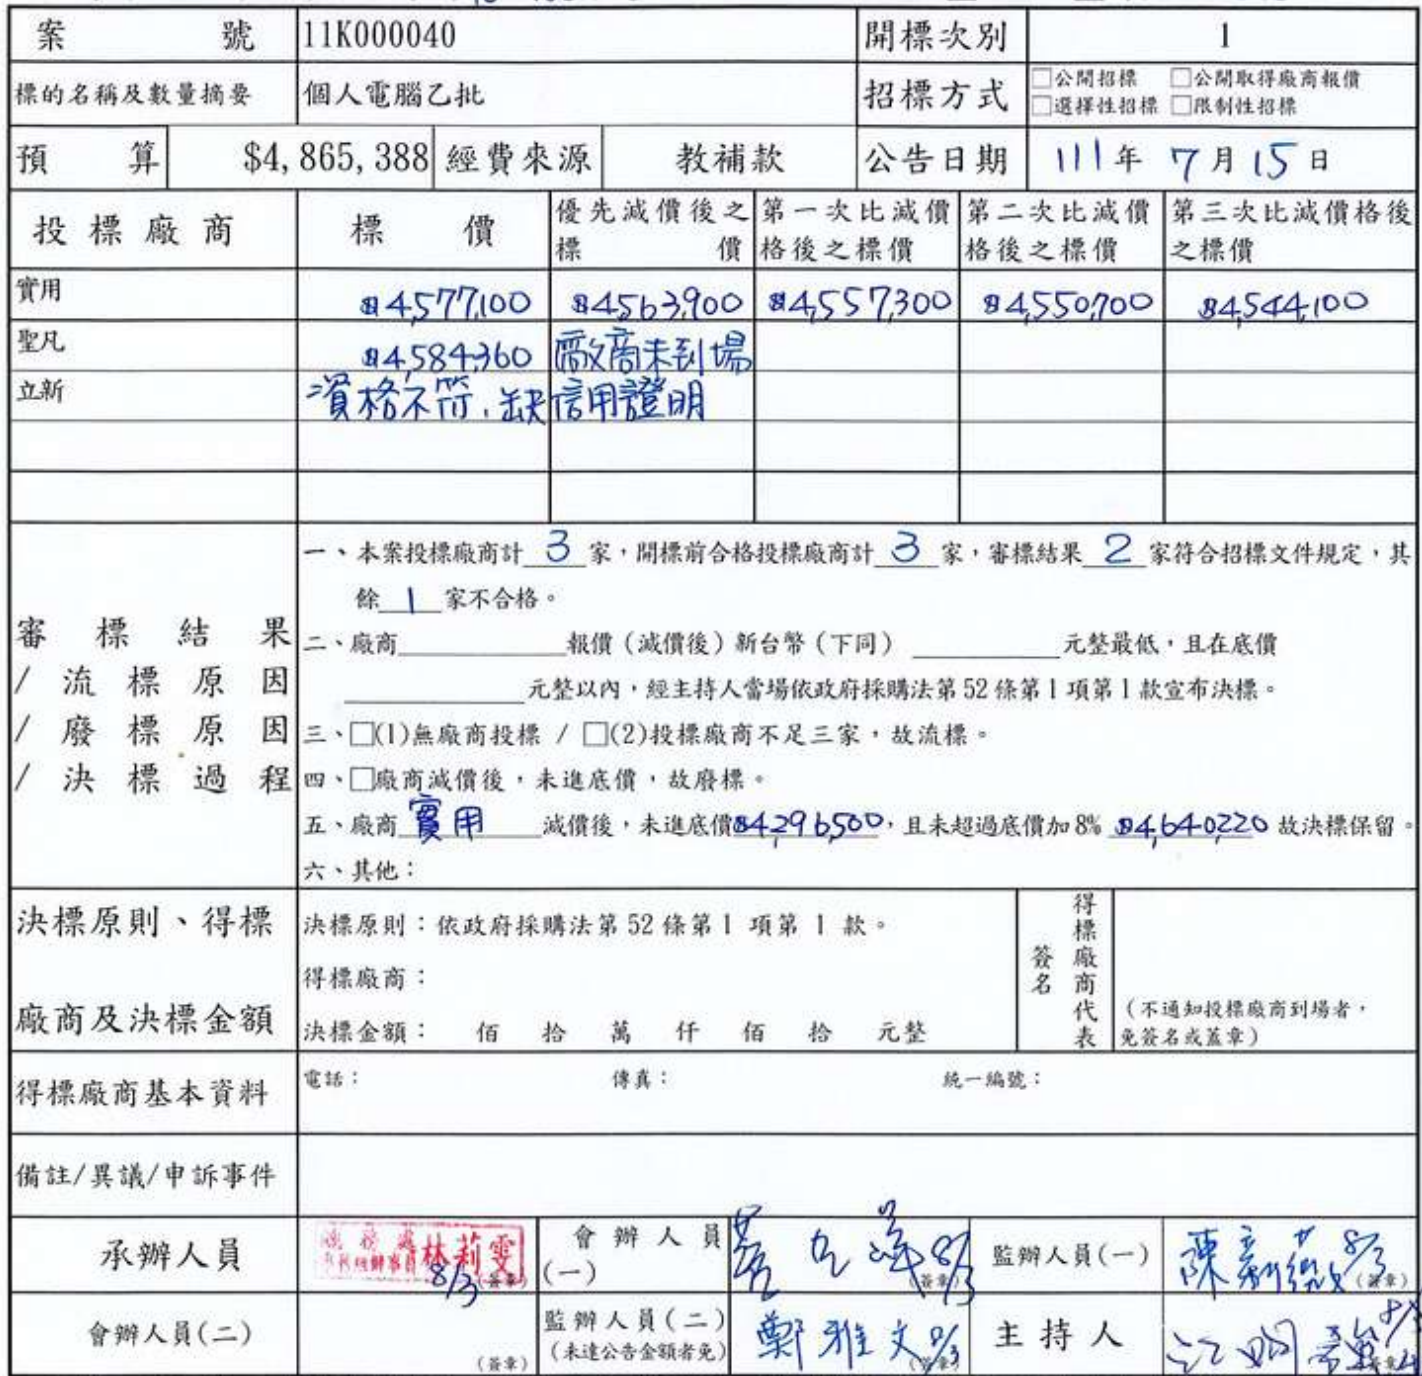 案 號 11K000040 開標次別 1
標的名稱及數量摘要 個人電腦乙批 招標方式 □公開招標 □公開取得廠商報價
□選擇性招標 □限制性招標
預 算 $4,865,388 經費來源 教補款 公告日期 111年 7月15日
投標廠商 標 價 優先減價後之標 價 第一次比減價格後之標價 第二次比減價格後之標價 第三次比減價格後之標價
實用 $4,577,100 $4,563,900 $4,557,300 $4,550,700 $4,544,100
聖凡 $4,584,360 廠商未到場
立新 資格不符,缺信用證明
審標結果
/流標原因
/廢標原因
/決標過程
一、本案投標廠商計 3 家,開標前合格投標廠商計 3 家,審標結果 2 家符合招標文件規定,其
餘 1 家不合格。
二、廠商 報價(減價後)新台幣(下同) 元整最低,且在底價
元整以內,經主持人當場依政府採購法第52條第1項第1款宣布決標。
三、□(1)無廠商投標 / □(2)投標廠商不足三家,故流標。
四、□廠商減價後,未進底價,故廢標。
五、廠商 實用 減價後,未進底價$4,296,500,且未超過底價加8% $4,640,220 故決標保留。
六、其他:
決標原則、得標
廠商及決標金額
決標原則:依政府採購法第52條第1 項第 1 款。
得標廠商:
決標金額: 佰 拾 萬 仟 佰 拾 元整
得標廠商代表
簽名
(不通知投標廠商到場者,
免簽名或蓋章)
得標廠商基本資料 電話: 傳真: 統一編號:
備註/異議/申訴事件
承辦人員 林莉雯 8/3 (簽章) 會辦人員(一) 8/3 (簽章) 監辦人員(一) 8/3 (簽章)
會辦人員(二) (簽章) 監辦人員(二)(未達公告金額者免) 鄭雅文 8/3 (簽章) 主持人